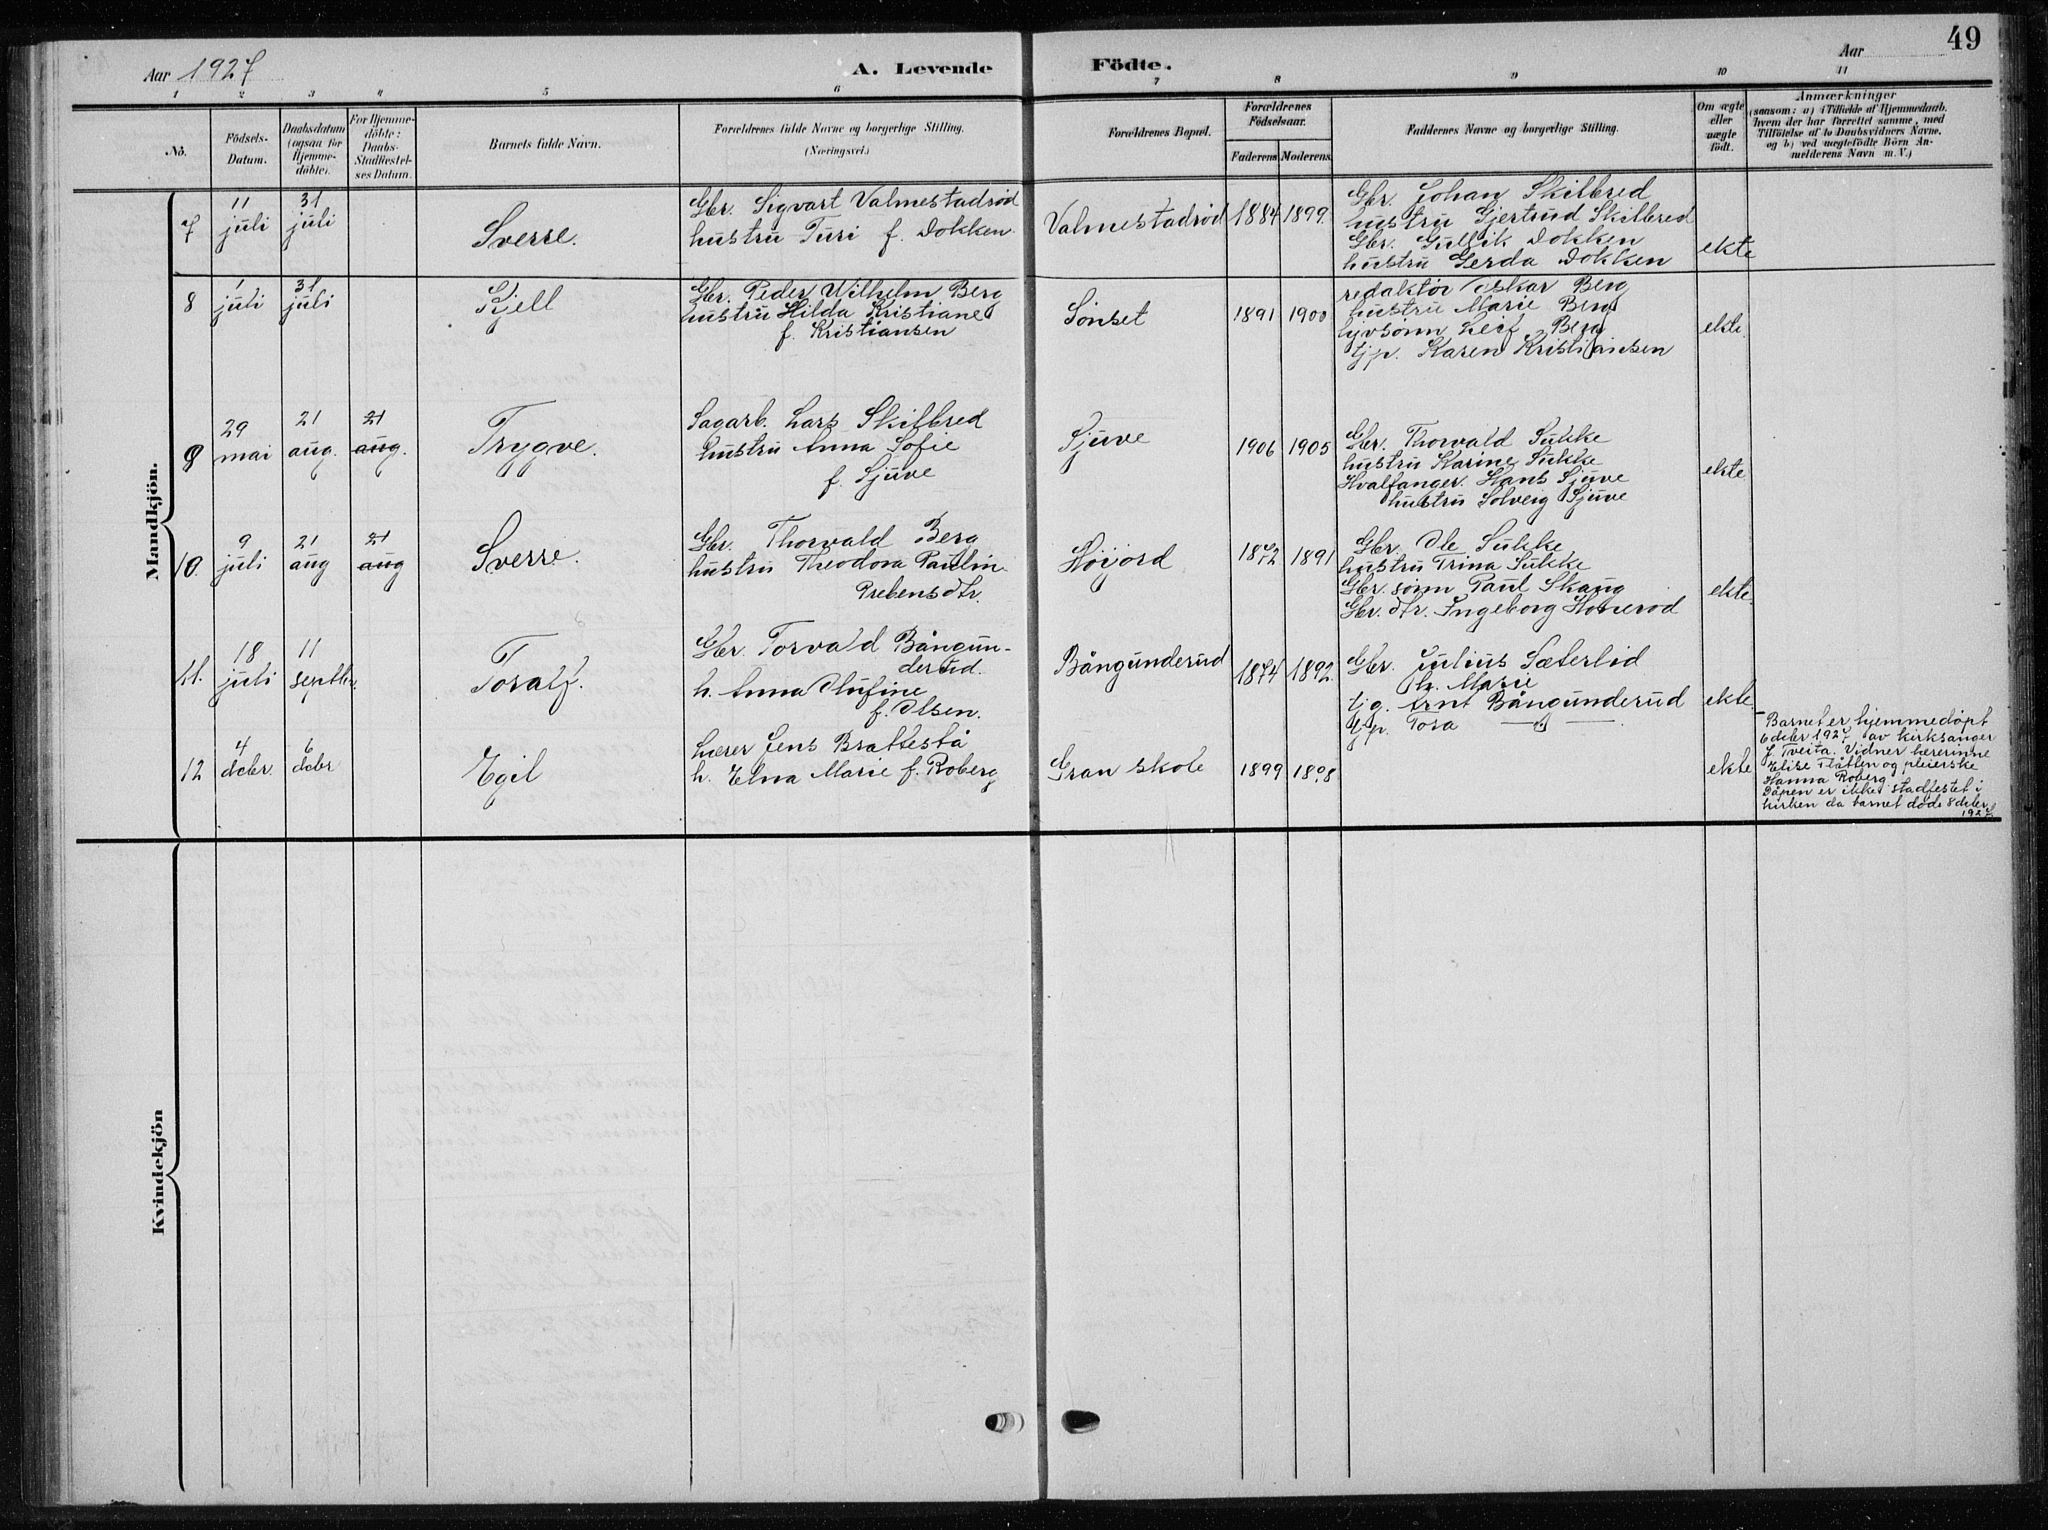 Aar 1927
A. Levende Födte.
Aar
49
1 2 3 4 5 6 7 8 9 10 11
No.
Födsels-Datum.
Daabsdatum (ogsaa for Hjemme-döbte).
For Hjemme-döbte: Daabs-Stadfæstel-ses Datum.
Barnets fulde Navn.
Forældrenes fulde Navne og borgerlige Stilling.
(Næringsvei.)
Forældrenes Bopæl.
Forældrenes Födselsaar.
Faderens Moderens.
Faddernes Navne og borgerlige Stilling.
Om ægte eller uægte födt.
Anmærkninger
(saasom: a) i Tilfælde af Hjemmedaab, hvem der har forrettet samme, med Tilföielse af to Daabsvidners Navne. og b) ved uægtefödte Börn An-melderens Navn m. V.)
Mandkjön.
7 11 juli 31 juli Sverre.
Gbr. Sigvart Valmestadrød
hustru Turi f. Dokken.
Valmestadrød 1884 1899.
Gbr. Johan Skilbred
hustru Gjertrud Skilbred
Gbr. Gullik Dokken
hustru Gerda Dokken
ekte
8 1 juli 31 juli Kjell
Gbr. Peder Wilhelm Berg
hustru Hilda Kristiane
f. Kristiansen
Sønset 1891 1900
redaktør Oskar Berg
hustru Marie Berg
Leif Berg
tjp. Karen Kristiansen
ekte.
9 29 mai 21 aug. 21 aug. Trygve.
Sagarb. Lars Skilbred
hustru Anna Sofie
f. Sjuve
Sjuve 1906 1905
Gbr. Thorvald Sukke
hustru Karine Sukke
Hvalfanger. Hans Sjuve
hustru Solverg Sjuve
ekte
10. 9 juli 21 aug 21 aug Sverre.
Gbr. Thorvald Berg
hustru Theodora Paulin
Prebensdtr.
Høijord 1872 1891
Gbr. Ole Sukke
hustru Trina Sukke
Gbr. sønn Paul Skaug
Gbr. dtr. Ingeborg Honerød
ekte.
11. 18 juli 11 septbr. Toralf.
Gbr. Torvald Bångun-
derud.
h. Anna Olufine
f. Olsen.
Bångunderud 1874 1892.
Gbr. Julius Sæterlid
h. Marie
tjg. Arnt Bångunderud
tjp. Tora — d —
ekte.
12 4 decbr. 6 decbr Egil
Lærer Jens Brattestå
h. Elna Marie f. Roberg
Gran skole 1899 1898
ekte
Barnet er hjemmedøpt
6 decbr 1927 av kirksanger
J. Tveita. Vidner lærerinne
Elise Flåtten og pleierske
Hanna Roberg.
Dåpen er ikke stadfestet i
kirken da barnet døde 8 decbr
1927.
Kvindekjön